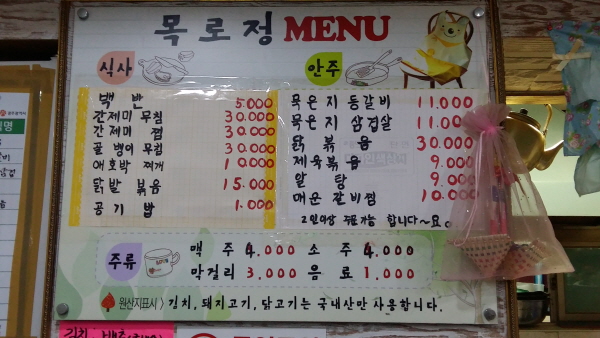 목로정 MENU
식사
백반 5.000
간제미 무침 30.000
간제미 찜 30.000
골뱅이 무침 30.000
애호박 찌개 10.000
닭발 볶음 15.000
공기밥 1.000
안주
묵은지 등갈비 11.000
묵은지 삼겹살 11.000
닭볶음 30.000
제육볶음 9.000
알탕 9.000
매운 갈비찜 10.000
2인이상 주문가능 합니다~요.
주류
맥주 4.000 소주 4.000
막걸리 3.000 음료 1.000
원산지표시 > 김치, 돼지고기, 닭고기는 국내산만 사용합니다.